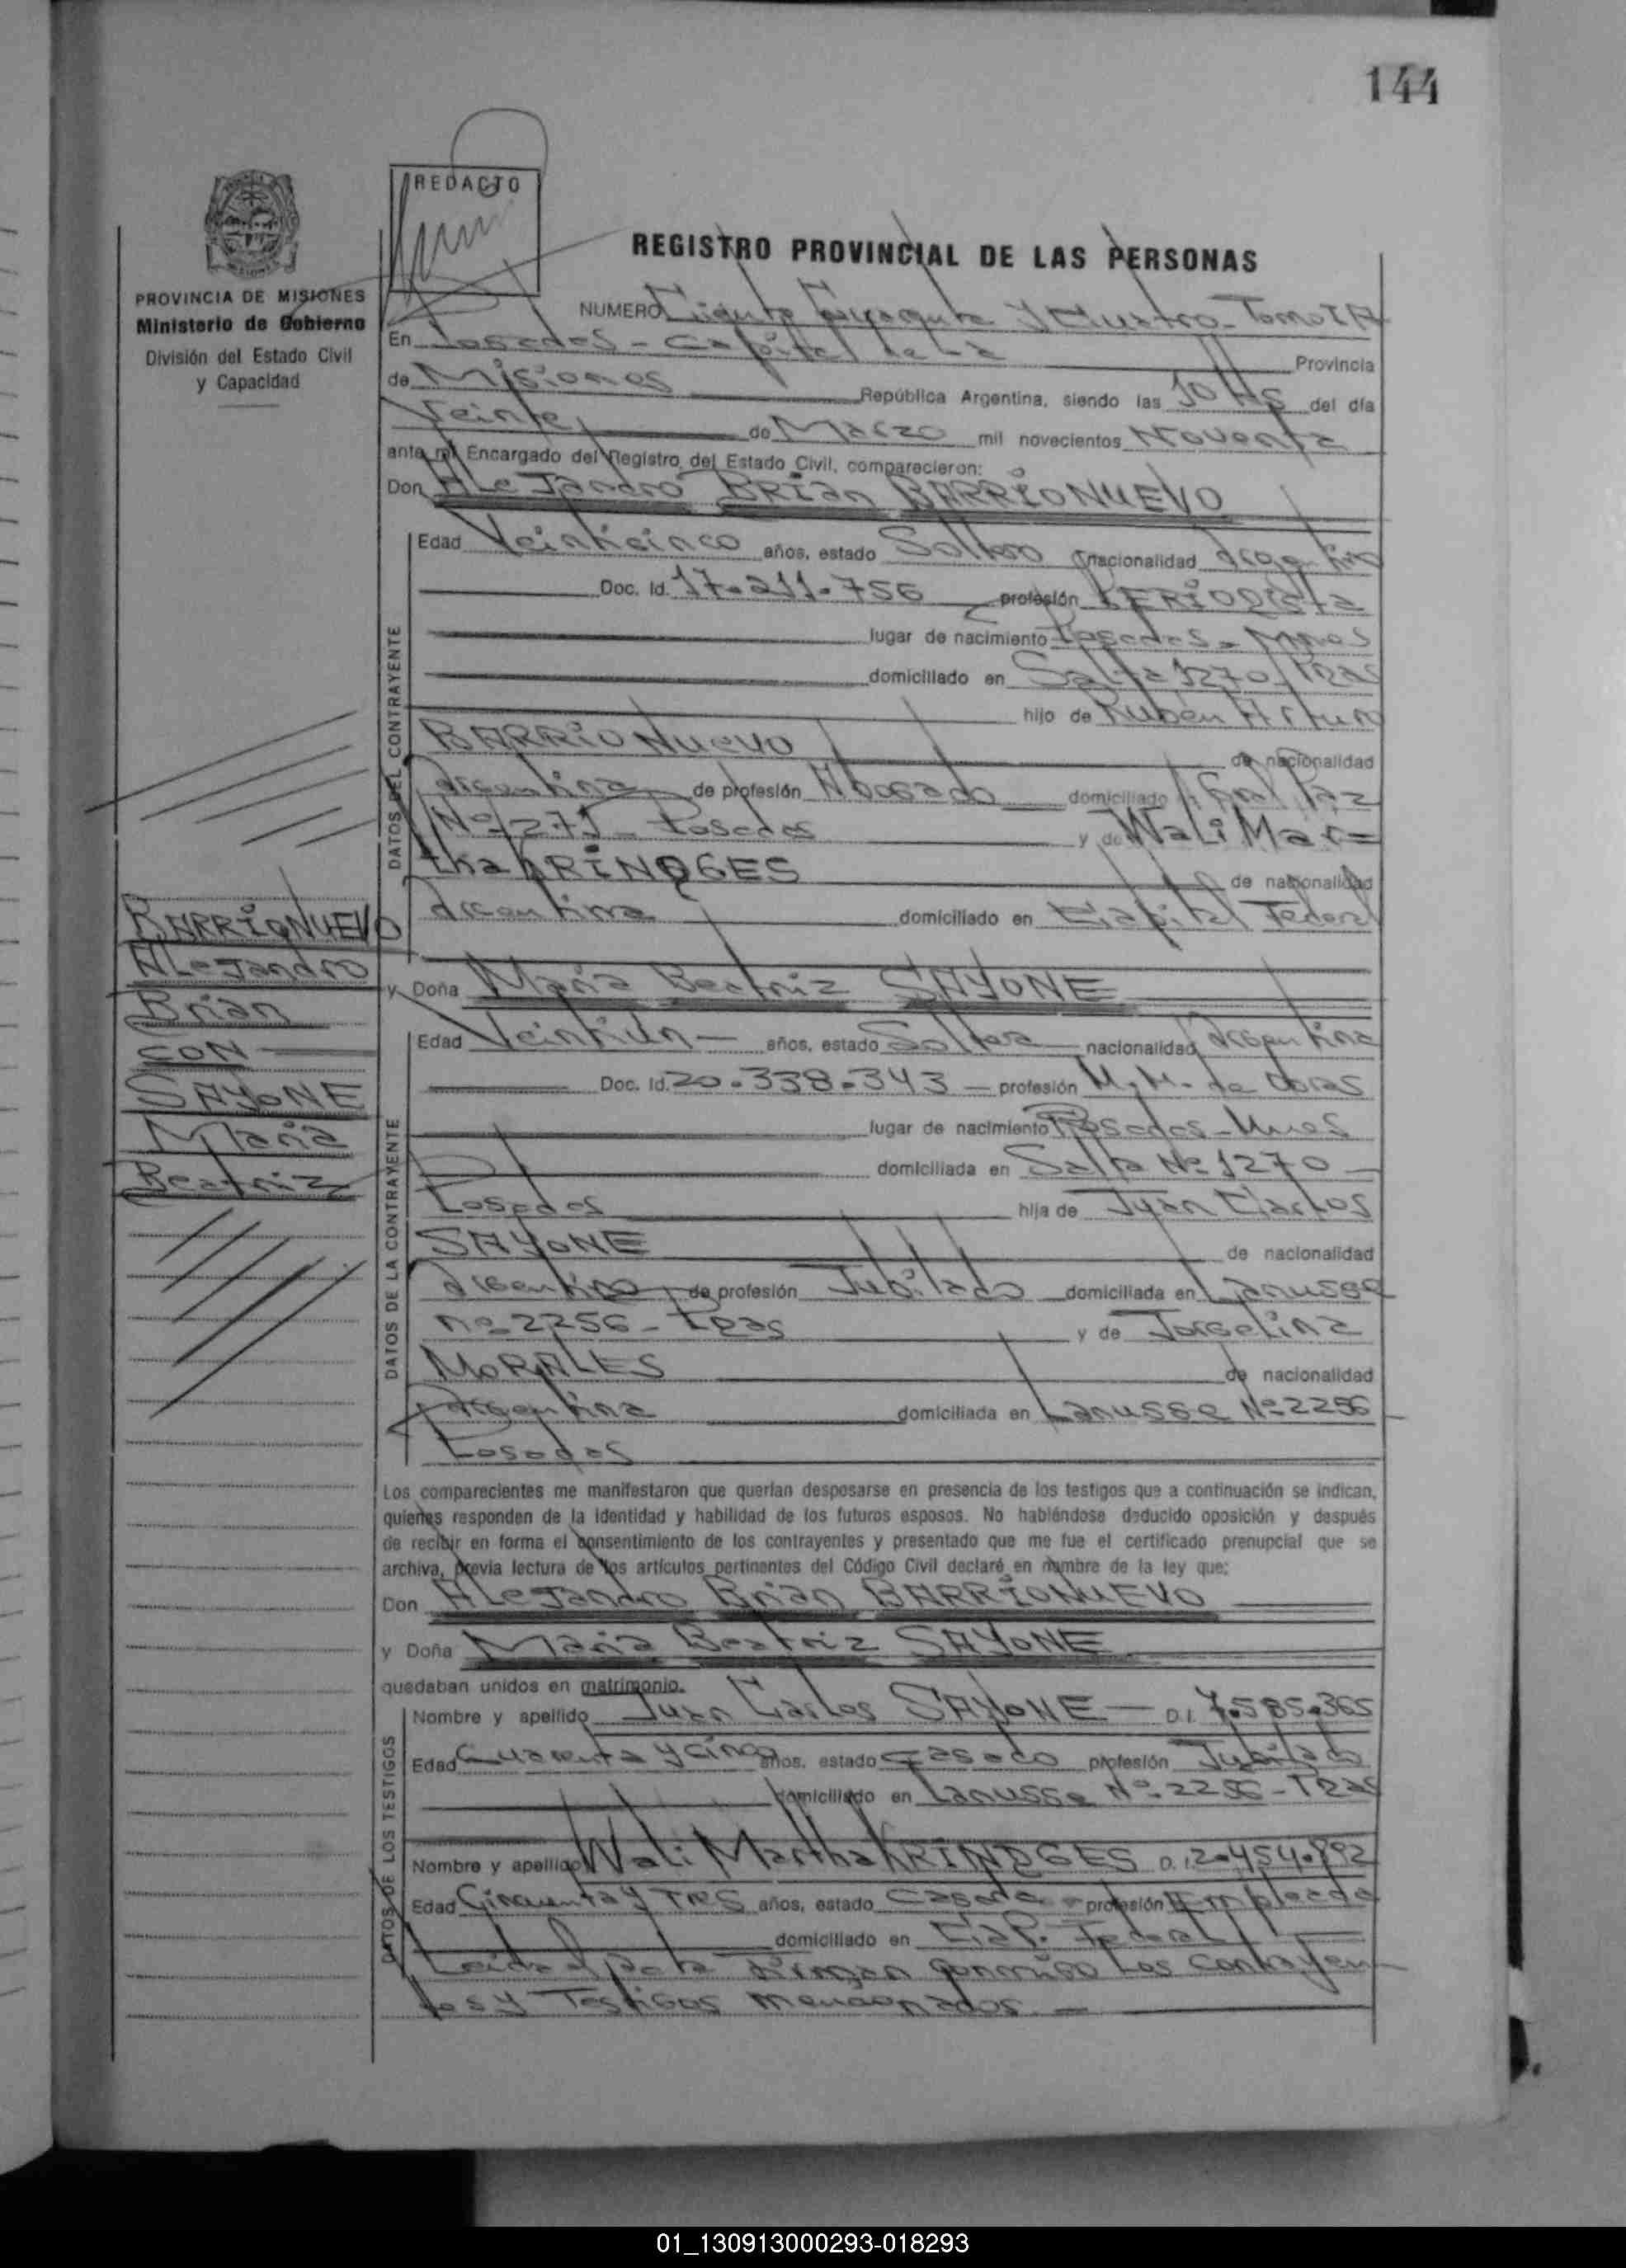 144
REDACTO
REGISTRO PROVINCIAL DE LAS PERSONAS
PROVINCIA DE MISIONES
Ministerio de Gobierno
División del Estado Civil
y Capacidad
NUMERO Ciento y Cuatro - Tomo
En Posadas - Capital de La Provincia
de Misiones República Argentina, siendo las 10 Hs del día
Veinte de Marzo mil novecientos Noventa
ante mí Encargado del Registro del Estado Civil, comparecieron:
Don ALeJandro BRian BARRIONUEVO
DATOS DEL CONTRAYENTE
Edad Veinticinco años, estado Soltero nacionalidad argentino
Doc. Id. 17.211.756 profesión PERIODista
lugar de nacimiento Posadas - Mnes
domiciliado en Salta 1270 Pdas
hijo de Rubén Arturo
BARRIONuevo de nacionalidad
argentina de profesión Abogado domiciliado Gral Paz
Nº 271 - Posadas y de WaLi Mar=
tha KRINDGES de nacionalidad
argentina domiciliado en Capital Federal
BARRIONUEVO
ALeJandro
Brian
CON
SAYONE
Maria
Beatriz
y Doña Maria Beatriz SAYONE
DATOS DE LA CONTRAYENTE
Edad Veintiún años, estado Soltera nacionalidad Argentina
Doc. Id. 20.338.343 profesión
lugar de nacimiento Posadas - Mnes
domiciliada en Salta Nº 1270
Posadas hija de Juan Carlos
SAYONE de nacionalidad
argentino de profesión Jubilado domiciliada en Lanusse
nº 2256 - Pdas y de Jorgelina
MORALES de nacionalidad
Argentina domiciliada en Lanusse Nº 2256
Posadas
Los comparecientes me manifestaron que querían desposarse en presencia de los testigos que a continuación se indican,
quienes responden de la identidad y habilidad de los futuros esposos. No habiéndose deducido oposición y después
de recibir en forma el consentimiento de los contrayentes y presentado que me fue el certificado prenupcial que se
archiva, previa lectura de los artículos pertinentes del Código Civil declaré en nombre de la ley que:
Don ALeJandro Brian BARRIONUEVO
y Doña Maria Beatriz SAYONE
quedaban unidos en matrimonio.
DATOS DE LOS TESTIGOS
Nombre y apellido Juan Carlos SAYONE - D.I. 7.585.365
Edad Cuarenta y cinco años, estado Casado profesión Jubilado
domiciliado en Lanusse Nº 2256 - Pdas
Nombre y apellido Wali Martha KRINDGES D.I. 2.454.892
Edad Cincuenta y Tres años, estado Casada profesión Empleada
domiciliado en Cap. Federal
Leida el acta Firman conmigo Los contrayen
tes y Testigos mencionados.
01_130913000293-018293